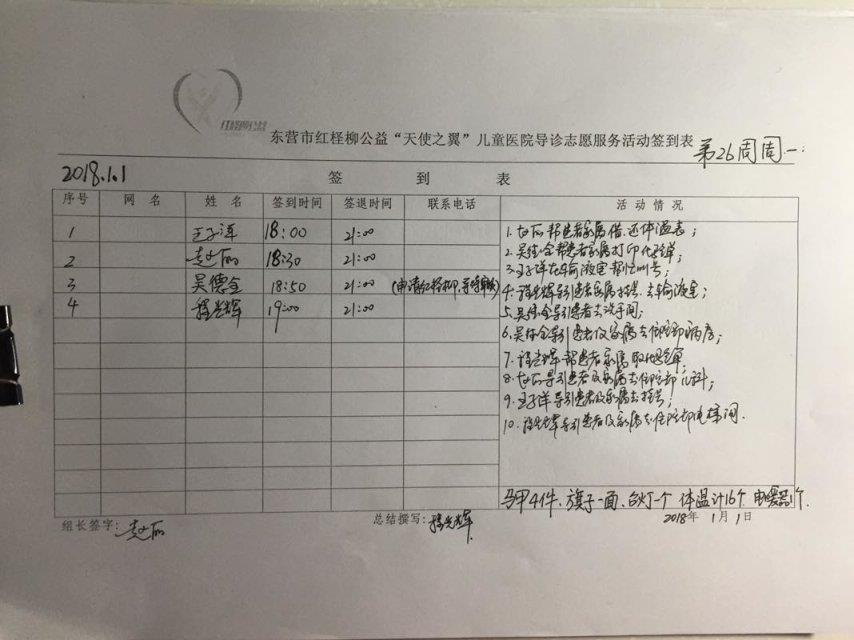 红柽柳公益
东营市红柽柳公益“天使之翼”儿童医院导诊志愿服务活动签到表 第26周周一
2018.1.1 签到表
序号 网名 姓名 签到时间 签退时间 联系电话 活动情况
1 王子洋 18:00 21:00
2 赵丽 18:30 21:00
3 吴德全 18:50 21:00
4 程光辉 19:00 21:00
1.赵丽帮患者家属借、还体温表;
2.吴德全帮患者家属打印化验单;
3.王子洋在输液室帮忙叫号;
4.程光辉导引患者家属挂号、去输液室;
5.吴德全导引患者去洗手间;
6.吴德全导引患者及家属去住院部病房;
7.程光辉帮患者家属取化验单;
8.赵丽导引患者及家属去住院部儿科;
9.王子洋导引患者及家属去挂号;
10.程光辉导引患者及家属去住院部电梯间.
马甲4件、旗子一面、台灯一个 体温计16个 电暖器1个.
组长签字:赵丽 总结撰写:程光辉 2018年1月1日